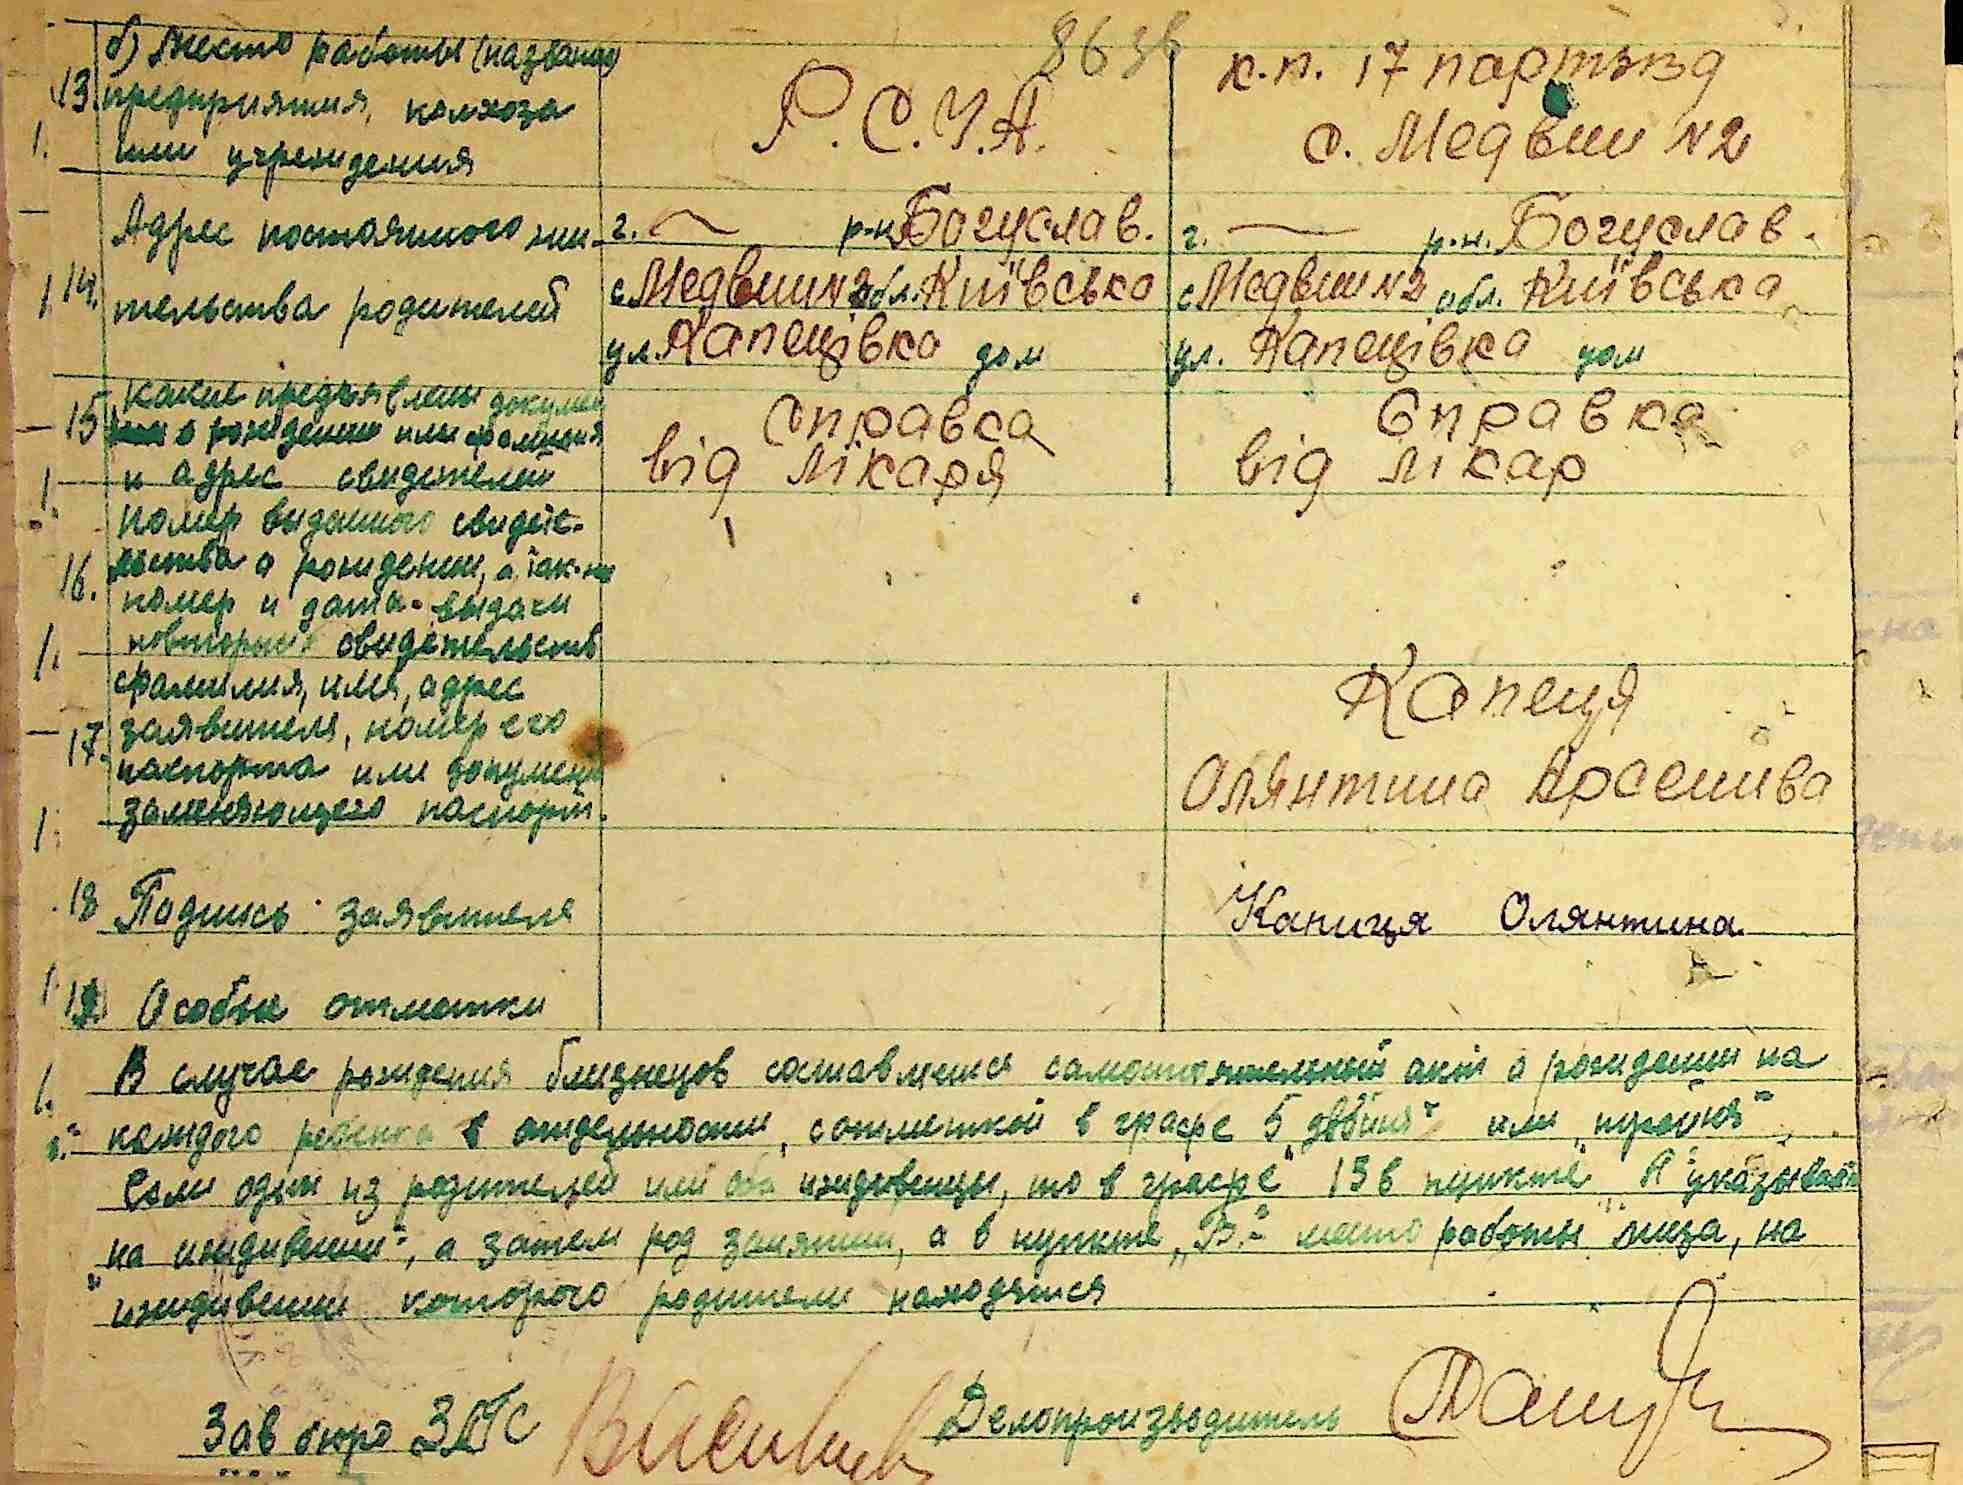 863в
б) Место работы (название
13 предприятия, колхоза
или учреждения
Р.С.Ч.А.
к.п. 17 партзвд
с. Медвин N2
14. Адрес постоянного жи-
тельства родителей
г. — р-н Богуслав.
с Медвин N2 обл. Київська
ул. Капецівка дом
г. — р.н. Богуслав.
с Медвин N2 обл. Київська
ул. Капецівка дом
15 Какие предъявлены докумен
о рождении или фамилия
и адрес свидетелей
Справка
від лікаря
Справка
від лікар
16. Номер выданого свидете-
льства о рождении, а так-же
номер и дата выдачи
повторных свидетельств
17. фамилия, имя, адрес
заявителя, номер его
паспорта или документ
заменяющего паспорт.
Капеця
Олянтина Арсенива
18 Подпись заявителя
Капиця Олянтина
19 Особые отметки
В случае рождения близнецов составляется самостоятельный акт о рождении на
каждого ребенка в отдельности, сотметкой в графе 5 „двойня" или „тройня"
Если один из родителей или оба иждивенцы, то в графе 13 в пункте „А" указывают
„на иждивении", а затем род занятии, а в пункте „В." место работы лица, на
иждивении которого родители находятся
Зав бюро ЗАГС
Делопроизводитель